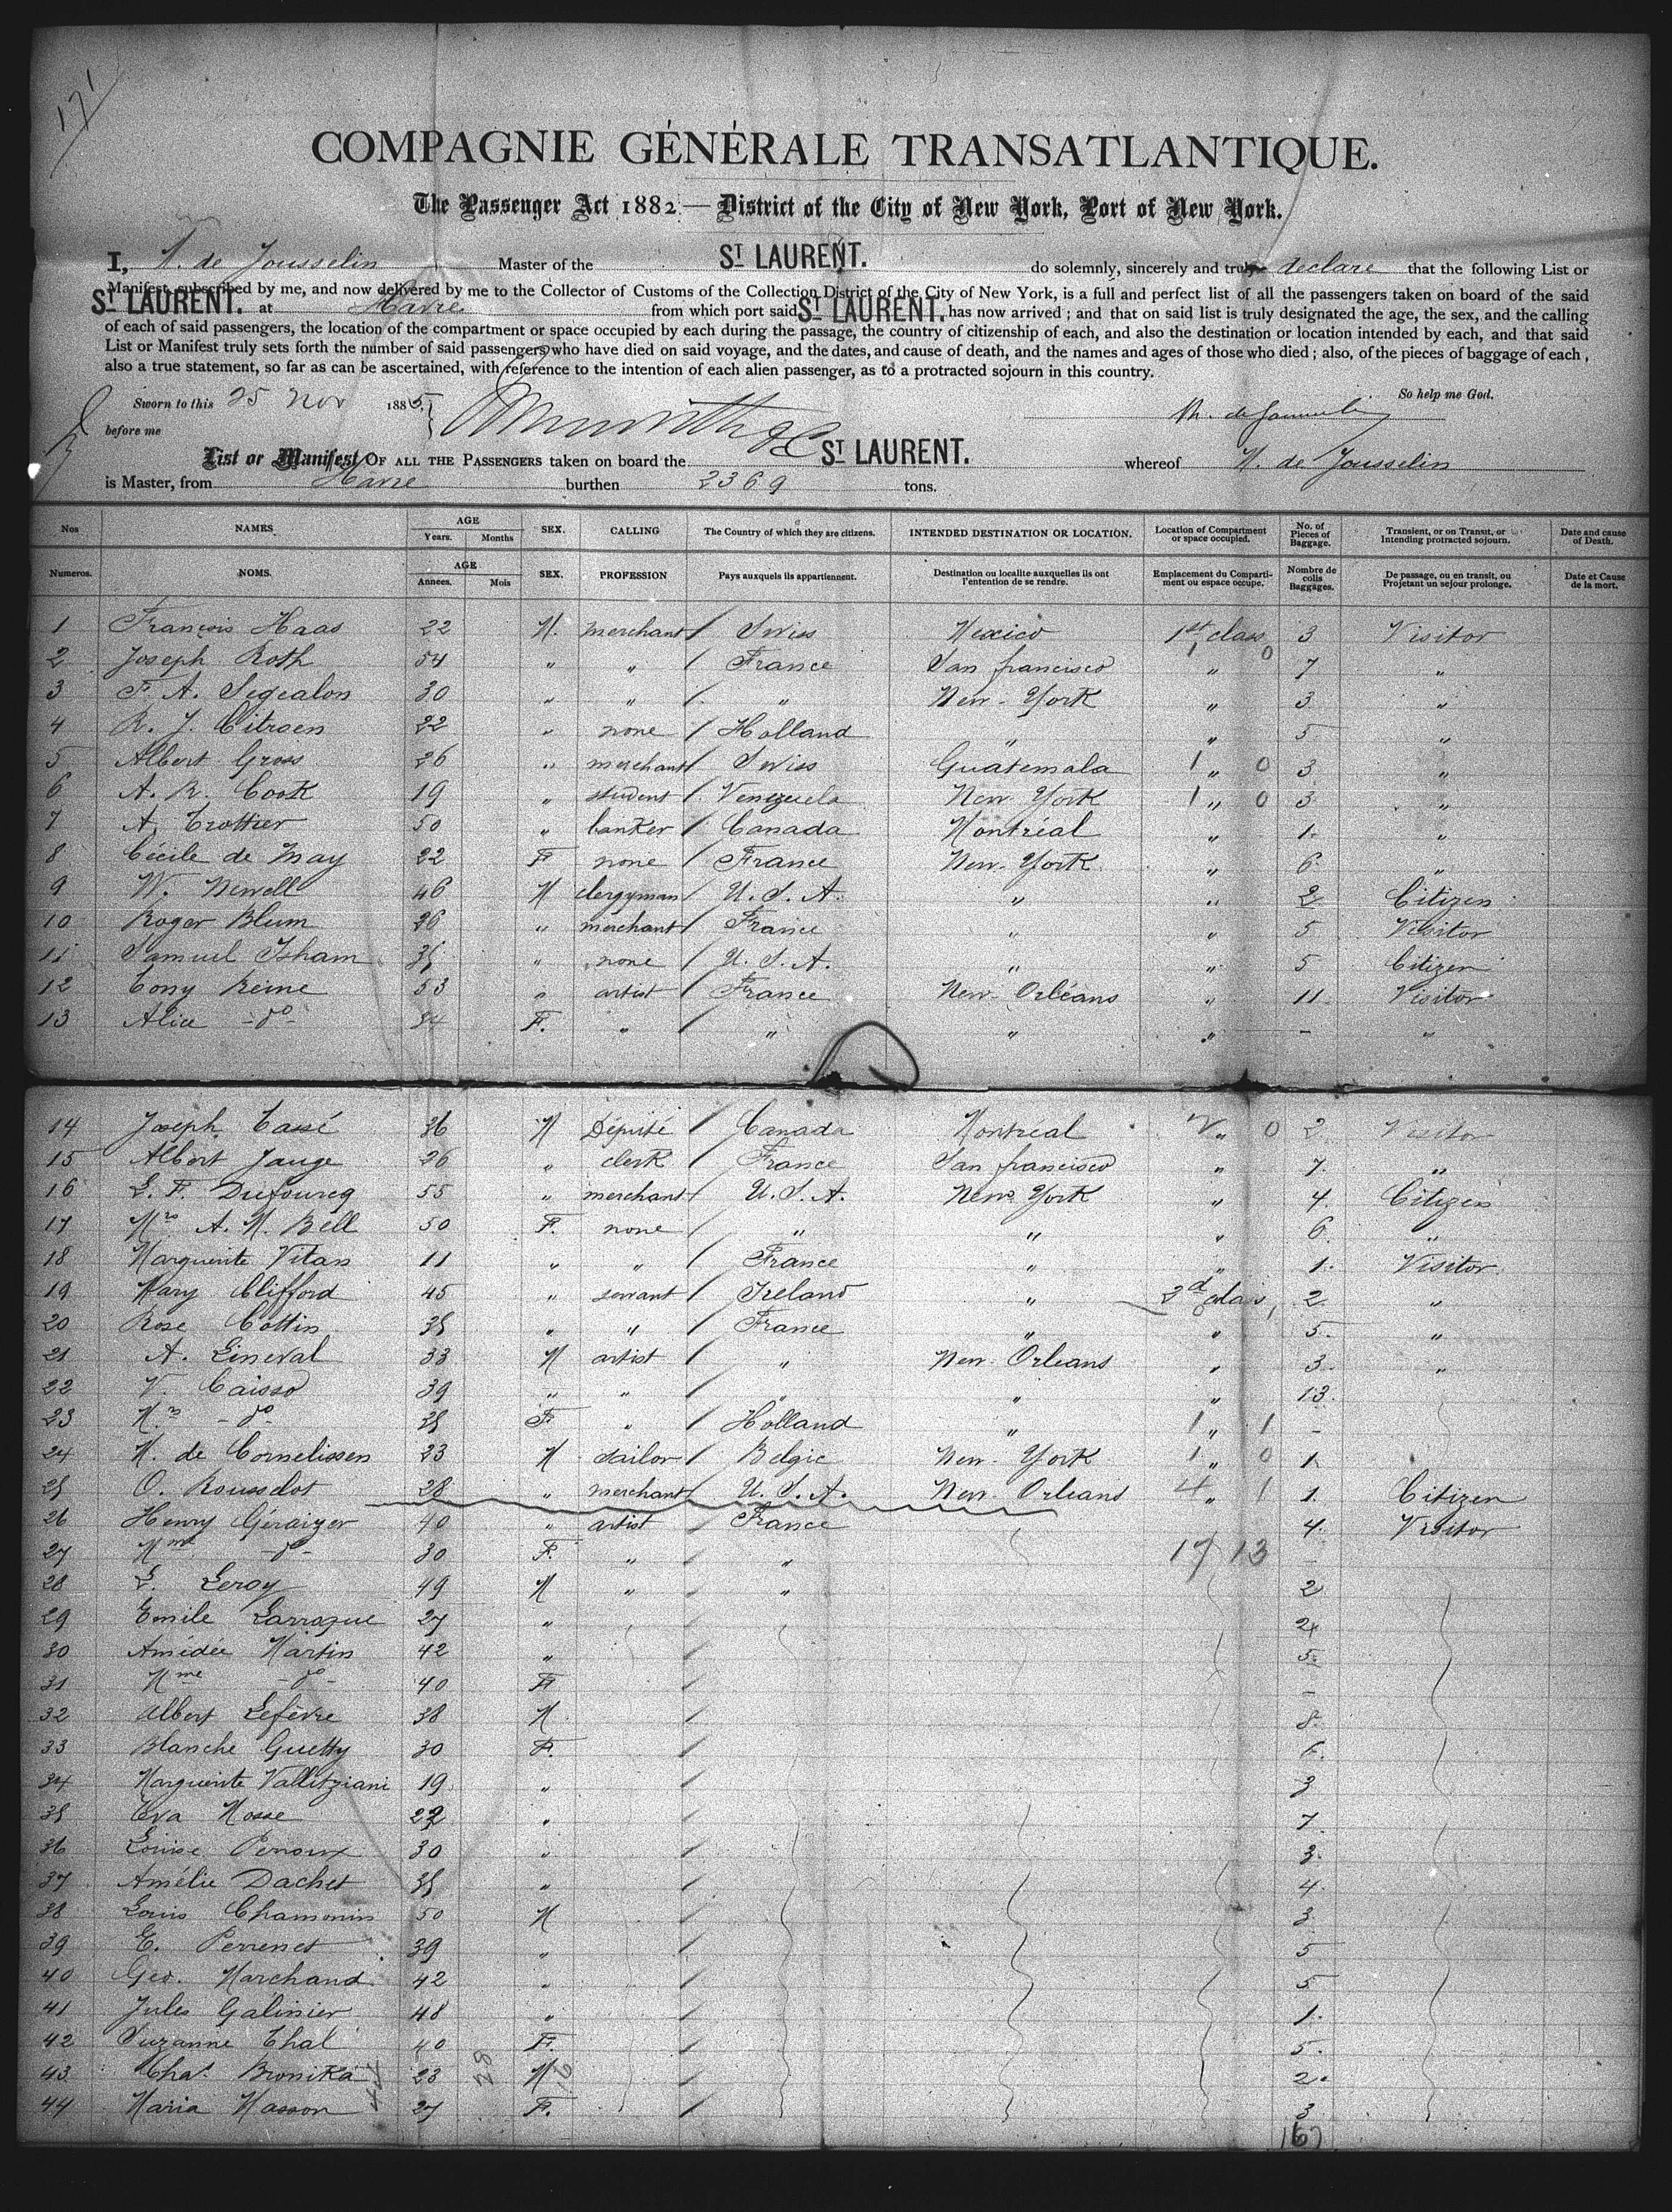 171
COMPAGNIE GÉNÉRALE TRANSATLANTIQUE.
The Passenger Act 1882 — District of the City of New York, Port of New York.
I, M. de Jousselin Master of the ST LAURENT. do solemnly, sincerely and truly declare that the following List or
Manifest, subscribed by me, and now delivered by me to the Collector of Customs of the Collection District of the City of New York, is a full and perfect list of all the passengers taken on board of the said
ST LAURENT. at Havre from which port said ST LAURENT. has now arrived ; and that on said list is truly designated the age, the sex, and the calling
of each of said passengers, the location of the compartment or space occupied by each during the passage, the country of citizenship of each, and also the destination or location intended by each, and that said
List or Manifest truly sets forth the number of said passengers who have died on said voyage, and the dates, and cause of death, and the names and ages of those who died ; also, of the pieces of baggage of each ,
also a true statement, so far as can be ascertained, with reference to the intention of each alien passenger, as to a protracted sojourn in this country.
So help me God.
Sworn to this 25 Nov 1885
before me
List or Manifest OF ALL THE PASSENGERS taken on board the ST LAURENT. whereof M. de Jousselin
is Master, from Havre burthen 2369 tons.
Nos NAMES AGE Years. Months SEX. CALLING The Country of which they are citizens. INTENDED DESTINATION OR LOCATION. Location of Compartment or space occupied. No. of Pieces of Baggage. Transient, or on Transit, or Intending protracted sojourn. Date and cause of Death.
Numeros. NOMS. AGE Annees. Mois SEX. PROFESSION Pays auxquels ils appartiennent. Destination ou localite auxquelles ils ont l'entention de se rendre. Emplacement du Compartiment ou espace occupe. Nombre de colis Baggages. De passage, ou en transit, ou Projetant un sejour prolonge. Date et Cause de la mort.
1 François Haas 22 M. merchant Swiss Mexico 1st class 3 Visitor
2 Joseph Roth 54 " " France San francisco " 1 0 7 "
3 F. A. Segealon 30 " " " New-York " 3 "
4 R. J. Citroen 22 " none Holland " " 5 "
5 Albert Gross 26 " merchant Swiss Guatemala 1 " 0 3 "
6 A. R. Cook 19 " student Venezuela New York 1 " 0 3 "
7 A. Trottier 50 " banker Canada Montréal " 1 "
8 Cécile de May 22 F none France New-York " 6 "
9 W. Newell 46 M clergyman U.S.A. " " 2 Citizen
10 Roger Blum 26 " merchant France " " 5 Visitor
11 Samuel Isham 35 " none U.S.A. " " 5 Citizen
12 Tony Reine 53 " artist France New-Orléans " 11 Visitor
13 Alice -do- 34 F. " " " " - "
14 Joseph Tassé 36 M Député Canada Montreal " 0 2 Visitor
15 Albert Jauge 26 " clerk France San francisco " 7. "
16 L. F. Dufourcq 55 " merchant U.S.A. New York " 4. Citizen
17 Mrs A. M. Bell 50 F. none " " " 6. "
18 Marguerite Vitan 11 " " France " " 1. Visitor
19 Mary Clifford 45 " servant Ireland " 2d class 2 "
20 Rose Cottin 35 " " France " " 5. "
21 A. Lineval 33 M artist " New-Orleans " 3. "
22 V. Caisso 39 " " " " " 13.
23 Mme -do- 35 F " Holland " 1 " 1 -
24 M. de Cornelissen 23 M sailor Belgic New-York 1 " 0 1.
25 O. Rousselot 28 " merchant U.S.A. New-Orleans 4 " 1 1. Citizen
26 Henry Géraizer 40 " artist France 4. Visitor
27 Mme -do- 30 F. " " 17 13 -
28 L. Leroy 49 M " " 2
29 Emile Larroque 27 " 24
30 Amédée Martin 42 " 5.
31 Mme -do- 40 F -
32 Albert Lefèvre 38 M 8.
33 Blanche Guetty 30 F. 6.
34 Marguerite Vallitziani 19 " 3
35 Eva Mosse 22 " 7.
36 Louise Perroux 30 " 3.
37 Amélie Dachet 35 " 4.
38 Louis Chamonin 50 M 3.
39 E. Perrenet 39 " 5
40 Geo. Marchand 42 " 5
41 Jules Galinier 48 " 1.
42 Suzanne Thal 40 F. 5.
43 Chas. Bronika 23 M 2.
44 Maria Masson 27 F. 3
44 28 16
167